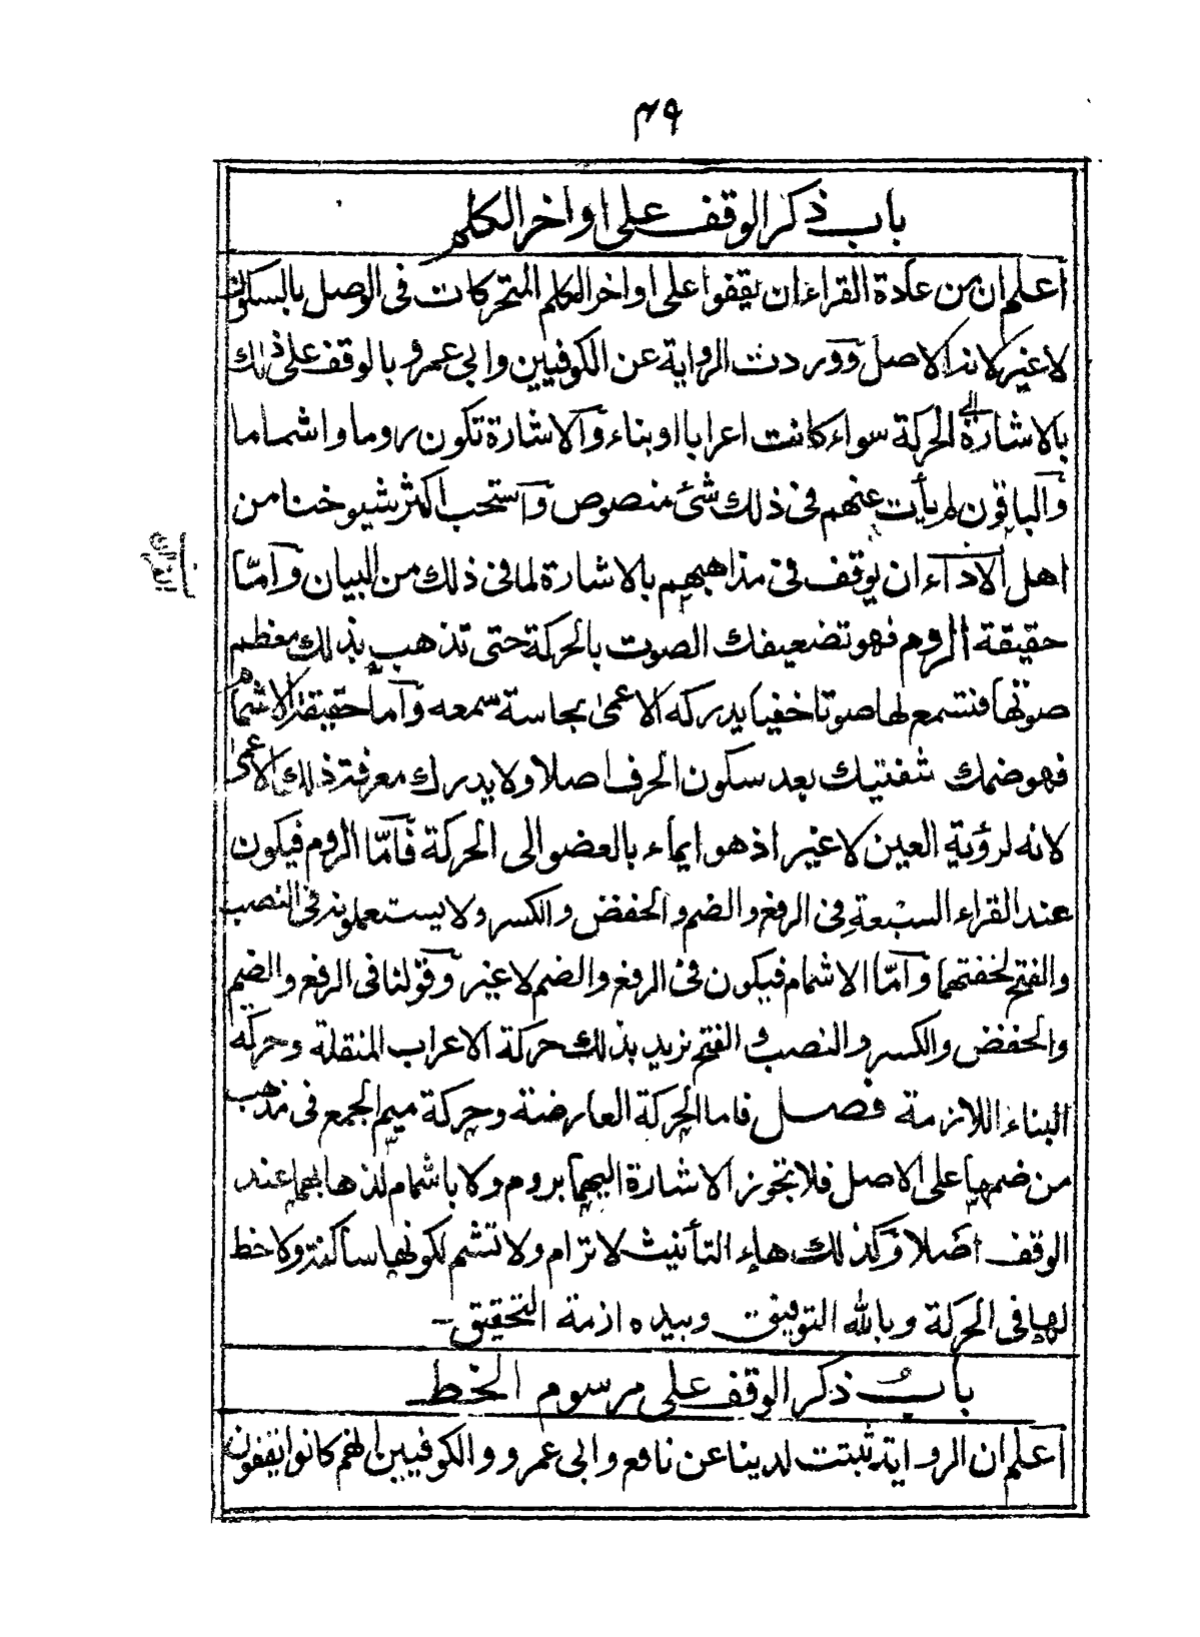 ٤٩
باب ذكر الوقف على اواخر الكلم
اعلم ان من عادة القراء ان يقفوا على اواخر الكلم المتحركات فى الوصل بالسكون
لا غير لانه الاصل ووردت الرواية عن الكوفيين وابى عمرو بالوقف على ذلك
بالاشارة الى الحركة سواء كانت اعرابا او بناء والاشارة تكون روما واشماما
والباقون لم يأت عنهم فى ذلك شئ منصوص واستحب اكثر شيوخنا من
اهل الاداء ان يوقف فى مذاهبهم بالاشارة لما فى ذلك من البيان وامّا
حقيقة الروم فهو تضعيفك الصوت بالحركة حتى تذهب بذلك معظم
صوتها فتسمع لها صوتا خفيا يدركه الاعمى بحاسة سمعه وأما حقيقة الاشمام
فهو ضمك شفتيك بعد سكون الحرف اصلا ولا يدرك معرفة ذلك الاعمى
لانه لرؤية العين لا غير اذ هو ايماء بالعضو الى الحركة فأمّا الروم فيكون
عند القراء السبعة فى الرفع والضم والخفض والكسر ولا يستعملونه فى النصب
والفتح لخفتهما وأمّا الاشمام فيكون فى الرفع والضم لا غير وقولنا فى الرفع والضم
والخفض والكسر والنصب و الفتح نريد بذلك حركة الاعراب المنقلة وحركة
البناء اللازمة فصل فاما الحركة العارضة وحركة ميم الجمع فى مذهب
من ضمها على الاصل فلا تجوز الاشارة اليهما بروم ولا باشمام لذهابهما عند
الوقف اصلا وكذلك هاء التأنيث لا ترام ولا تشم لكونها ساكنة ولا حظ
لها فى الحركة وبالله التوفيق وبيده ازمة التحقيق -
باب ذكر الوقف على مرسوم الخط
اعلم ان الرواية ثبتت لدينا عن نافع وابى عمرو والكوفيين انهم كانوا يقفون